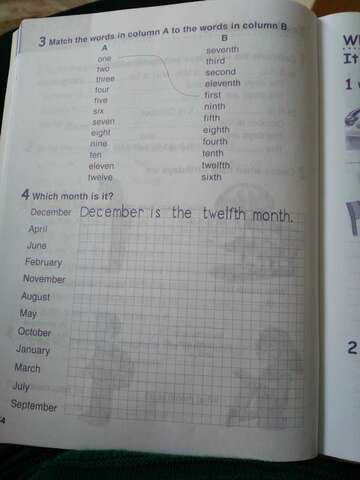 3 Match the words in column A to the words in column B.
A B
one seventh
two third
three second
four eleventh
five first
six ninth
seven fifth
eight eighth
nine fourth
ten tenth
eleven twelfth
twelve sixth
4 Which month is it?
December December is the twelfth month.
April
June
February
November
August
May
October
January
March
July
September
It
1
2